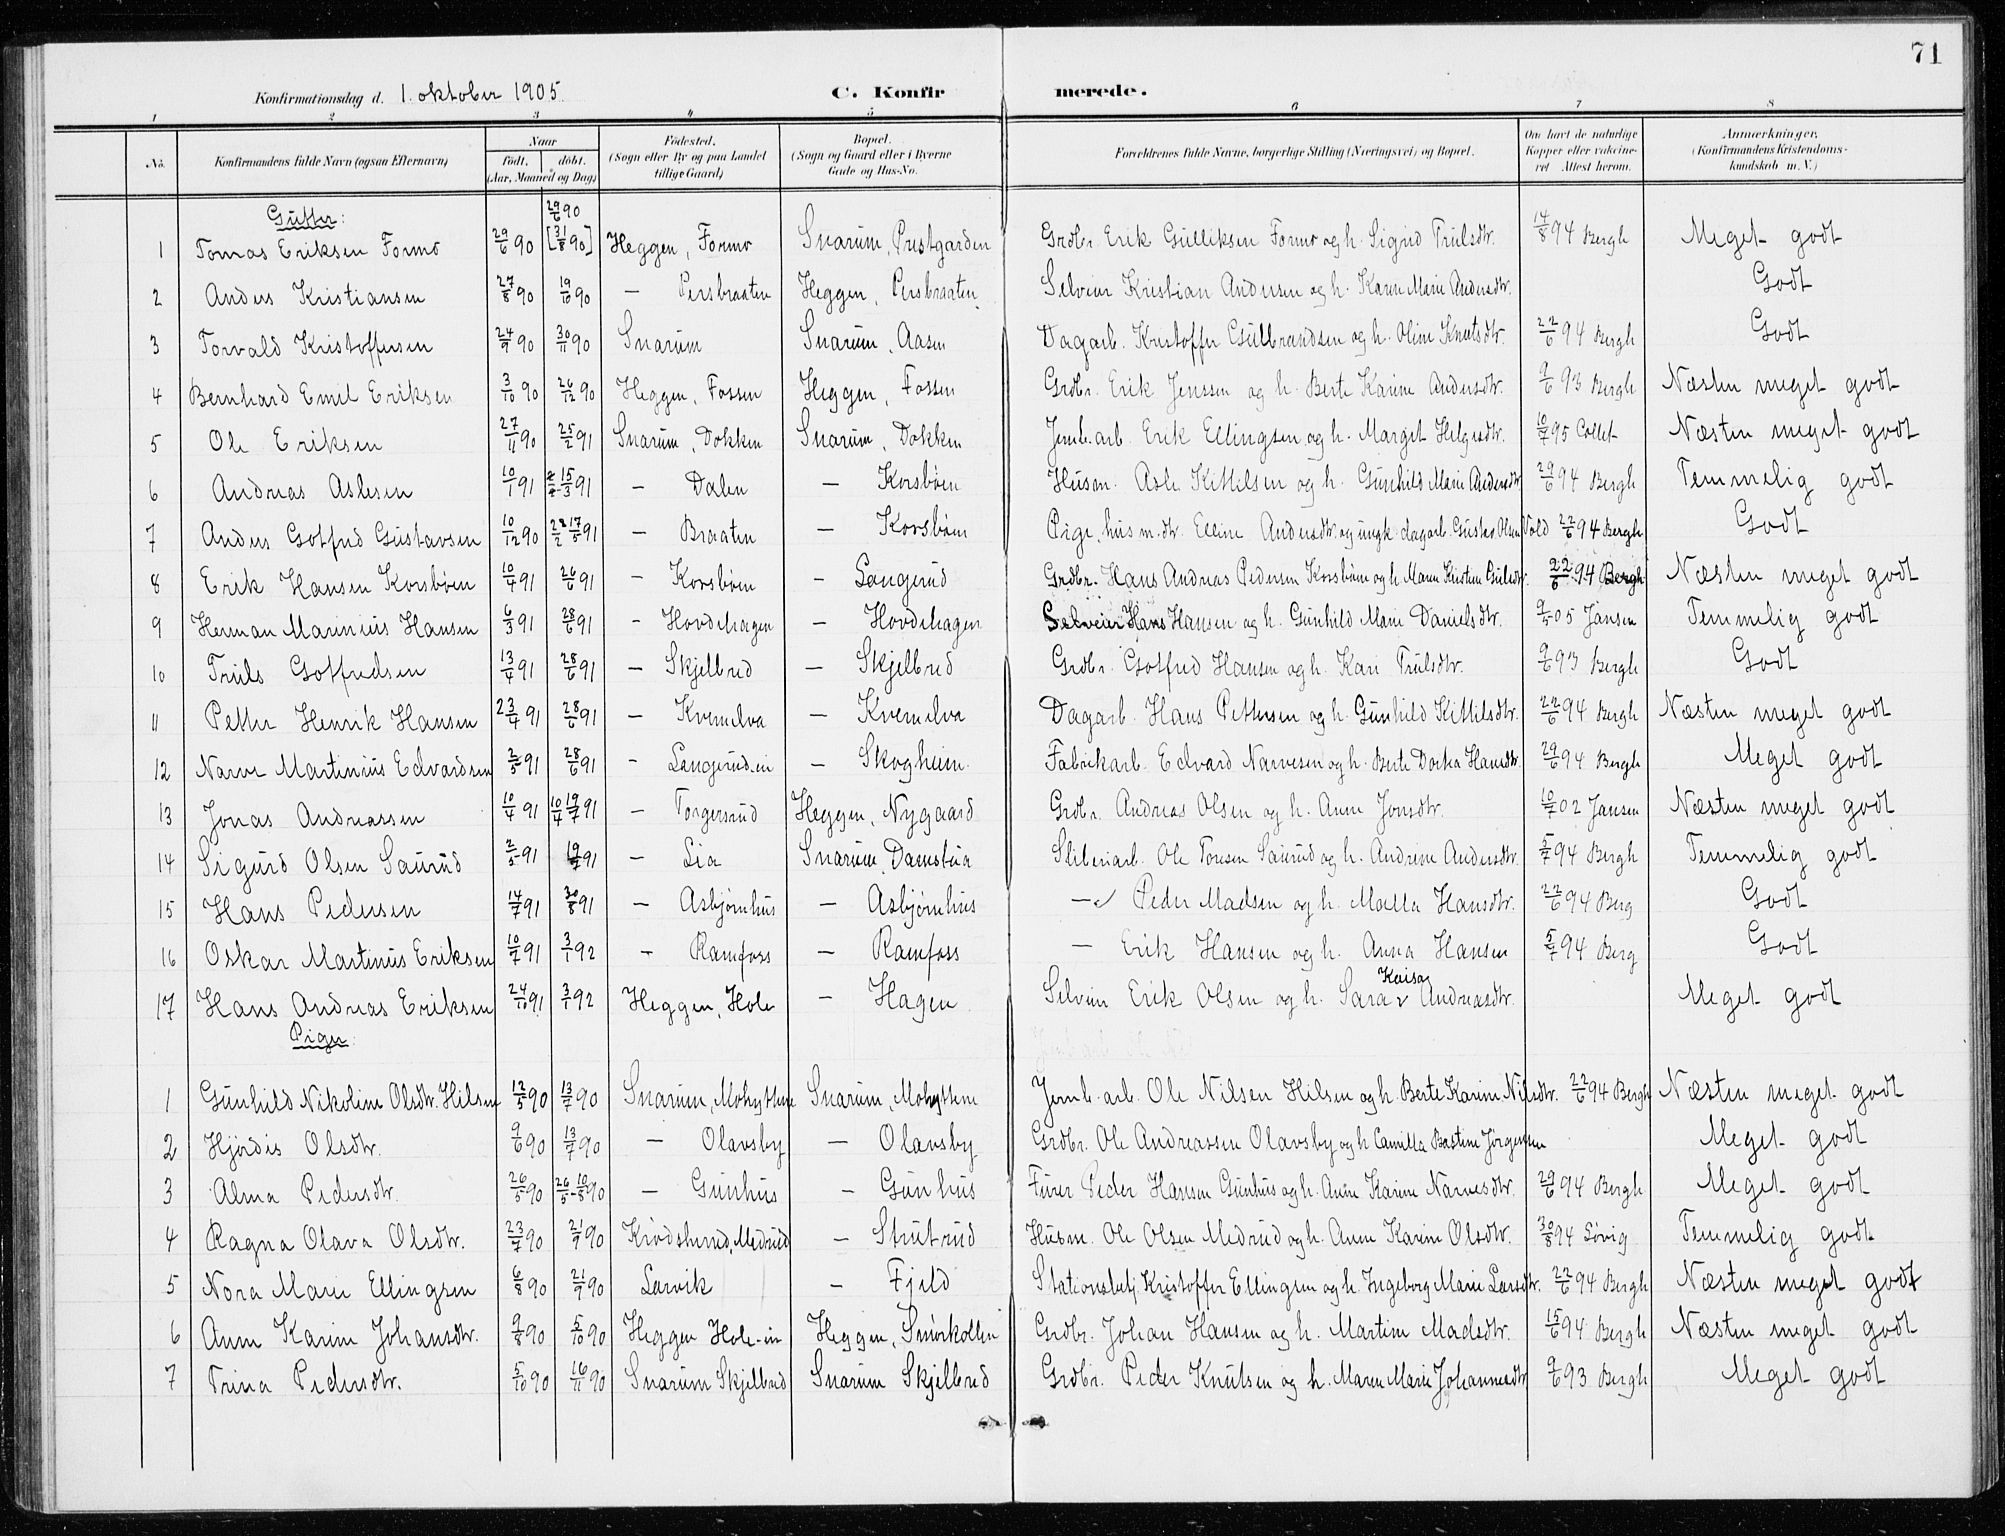 71
Konfirmationsdag d. 1. oktober 1905 C. Konfir merede.
1 2 3 4 5 6 7 8
No. Konfirmandens fulde Navn (ogsaa Efternavn) Naar født. døbt. (Aar, Maaned og Dag) Fødested. (Sogn eller By og paa Landet tillige Gaard) Bopæl. (Sogn og Gaard eller i Byerne Gade og Hus-No. Forældrenes fulde Navne, borgerlige Stilling (Næringsvei) og Bopæl. Om havt de naturlige Kopper eller vakcineret Attest herom. Anmærkninger. (Konfirmandens Kristendomskundskab m. V.)
Gutter:
1 Tomas Eriksen Formo 29/6 90 29/6 90 [31/8 90] Heggen, Formo Snarum, Prestgarden Grdbr. Erik Gulliksen Formo og h. Sigrid Trulsdtr. 14/8 94 Bergh Meget godt
2 Anders Kristiansen 27/8 90 19/10 90 — Persbraaten Heggen, Persbraaten Selveier Kristian Andersen og h. Karen Marie Andersdtr. Godt
3 Torvald Kristoffersen 24/9 90 30/11 90 Snarum Snarum, Aasen Dagarb. Kristoffer Gulbrandsen og h. Oline Knutsdtr. 22/6 94 Bergh Godt
4 Bernhard Emil Eriksen 3/10 90 26/12 90 Heggen, Fossen Heggen, Fossen Grdbr. Erik Jenssen og h. Berte Karine Andersdtr. 9/6 93 Bergh Næsten meget godt
5 Ole Eriksen 27/11 90 25/2 91 Snarum, Dokken Snarum, Dokken Jernb.arb. Erik Ellingsen og h. Margit Helgesdtr. 10/7 95 Collet Næsten meget godt
6 Andreas Aslesen 10/1 91 15/3 91 — Dalen — Korsbøen Husm. Asle Kittilsen og h. Gunhild Marie Andersdtr. 29/6 94 Bergh Temmelig godt
7 Anders Gotfred Gustavsen 10/12 90 28/2 17/5 91 — Braaten — Korsbøen Pige, husm.dtr. Elline Andersdtr. og ungk. dagarb. Gustav Olsen Vold 22/6 94 Bergh Godt
8 Erik Hansen Korsbøen 10/4 91 26/6 91 — Korsbøen — Langerud Grdbr. Hans Andreas Pedersen Korsbøen og h. Maren Kirstine 22/6 94 Bergh Næsten meget godt
9 Herman Marinius Hansen 6/3 91 28/6 91 — Hovdehagen — Hovdehagen Selveier Hans Hansen og h. Gunhild Marie Danielsdtr. 9/5 05 Jansen Temmelig godt
10 Truls Gotfredsen 13/4 91 28/6 91 — Skjelbred — Skjelbred Grdbr. Gotfred Hansen og h. Kari Trulsdtr. 9/6 93 Bergh Godt
11 Petter Henrik Hansen 23/4 91 28/6 91 — Kvernelva — Kvernelva Dagarb. Hans Pettersen og h. Gunhild Kittilsdtr. 22/6 94 Bergh Næsten meget godt
12 Narve Martinius Edvardsen 2/5 91 28/6 91 — Langerudeie — Skogheim Fabrikarb. Edvard Narvesen og h. Berte Dorkea Hansdtr. 29/6 94 Bergh Meget godt
13 Jonas Andreassen 10/4 91 10/4 19/7 91 — Torgersrud Heggen, Nygaard Grdbr. Andreas Olsen og h. Anne Jonsdtr. 10/7 02 Jansen Næsten meget godt
14 Sigurd Olsen Saurud 2/5 91 19/7 91 — Lia Snarum, Damstua Sliberiarb. Ole Toresen Saurud og h. Andrine Andersdtr. 5/7 94 Bergh Temmelig godt
15 Hans Pedersen 14/7 91 30/8 91 — Asbjørnhus — Asbjørnhus — Peder Madsen og h. Malla Hansdtr. 22/6 94 Berg Godt
16 Oskar Martinius Eriksen 10/7 91 3/1 92 — Ramfoss — Ramfoss — Erik Hansen og h. Anna Hansen 5/7 94 Berg Godt
17 Hans Andreas Eriksen 24/10 91 3/1 92 Heggen, Hole — Hagen Selveier Erik Olsen og h. Sara Kaisa Andreasdtr. Meget godt
Piger:
1 Gunhild Nikoline Olsdtr. Hilsen 12/5 90 13/7 90 Snarum, Mohyttene Snarum, Mohyttene Jernb.arb. Ole Nilsen Hilsen og h. Berte Karine Nilsdtr. 22/6 94 Bergh Næsten meget godt
2 Hjørdis Olsdtr. 9/6 90 13/7 90 — Olavsby — Olavsby Grdbr. Ole Andreassen Olavsby og h. Camilla Bastine Jørgensen Meget godt
3 Alma Pedersdtr. 26/5 90 26/5-10/8 90 — Gunhus — Gunhus Furer Peder Hansen Gunhus og h. Anne Karine Narvesdtr. 29/6 94 Bergh Meget godt
4 Ragna Olava Olsdtr. 23/7 90 21/9 90 Krødsherred, Medrud — Strutrud Husm. Ole Olsen Medrud og h. Anne Karine Olsdtr. 30/8 94 Sørvig Temmelig godt
5 Nora Marie Ellingsen 6/8 90 21/9 90 Larvik — Fjeld Stationsbetj. Kristoffer Ellingsen og h. Ingeborg Marie Larsdtr. 22/6 94 Bergh Næsten meget godt
6 Anne Karine Johansdtr. 9/8 90 5/10 90 Heggen Hole-eie Heggen, Snurkollen Grdbr. Johan Hansen og h. Martine Madsdtr. 15/6 94 Bergh Næsten meget godt
7 Trina Pedersdtr. 5/10 90 16/11 90 Snarum Skjelbred Snarum Skjelbred Grdbr. Peder Knutsen og h. Maren Marie Johannesdtr 9/6 93 Bergh Meget godt